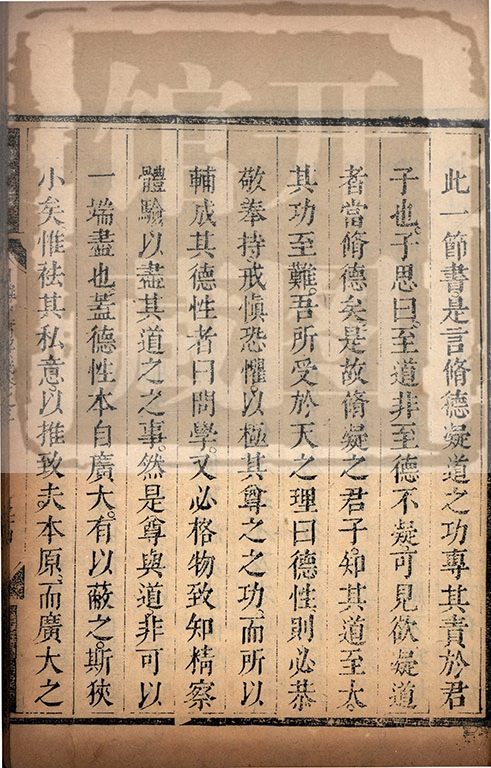 此一節書是言脩德凝道之功專其責於君
子也子思曰至道非至德不凝可見欲凝道
者當脩德矣是故脩凝之君子知其道至大
其功至難吾所受於天之理曰德性則必恭
敬奉持戒慎恐懼以極其尊之之功而所以
輔成其德性者曰問學又必格物致知精察
體驗以盡其道之之事然是尊與道非可以
一端盡也蓋德性本自廣大有以蔽之斯狹
小矣惟祛其私意以推致夫本原而廣大之